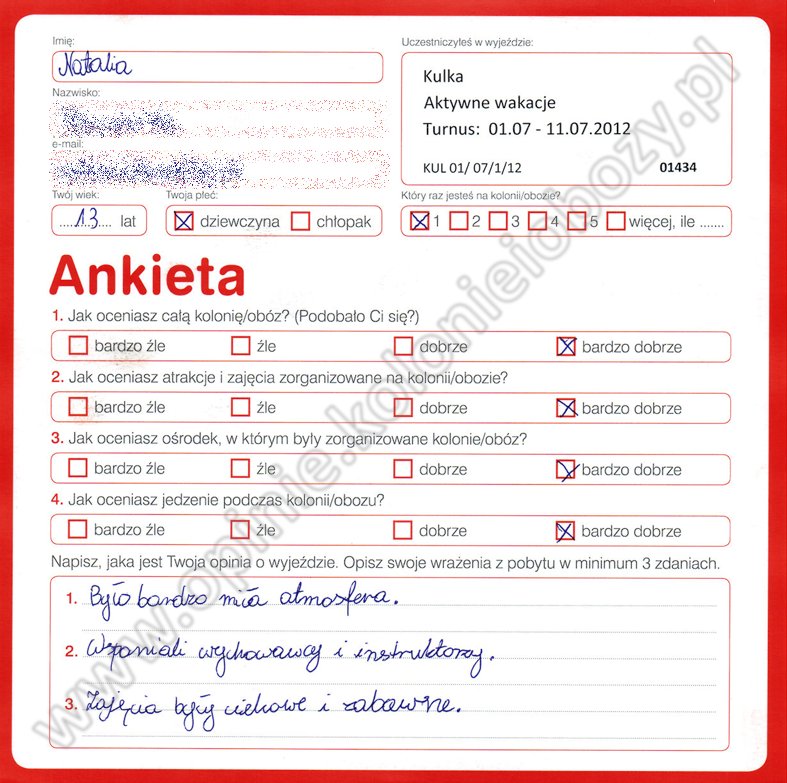 Imię:
Natalia
Nazwisko:
e-mail:
Twój wiek:
13 lat
Twoja płeć:
dziewczyna chłopak
Uczestniczyłeś w wyjeździe:
Kulka
Aktywne wakacje
Turnus: 01.07 - 11.07.2012
KUL 01/ 07/1/12 01434
Który raz jesteś na kolonii/obozie?
1 2 3 4 5 więcej, ile .......
Ankieta
1. Jak oceniasz całą kolonię/obóz? (Podobało Ci się?)
bardzo źle źle dobrze bardzo dobrze
2. Jak oceniasz atrakcje i zajęcia zorganizowane na kolonii/obozie?
bardzo źle źle dobrze bardzo dobrze
3. Jak oceniasz ośrodek, w którym były zorganizowane kolonie/obóz?
bardzo źle źle dobrze bardzo dobrze
4. Jak oceniasz jedzenie podczas kolonii/obozu?
bardzo źle źle dobrze bardzo dobrze
Napisz, jaka jest Twoja opinia o wyjeździe. Opisz swoje wrażenia z pobytu w minimum 3 zdaniach.
1. Było bardzo miła atmosfera.
2. Wspaniali wychowawcy i instruktorzy.
3. Zajęcia były ciekowe i zabawne.
www.opinie.kolonieiobozy.pl